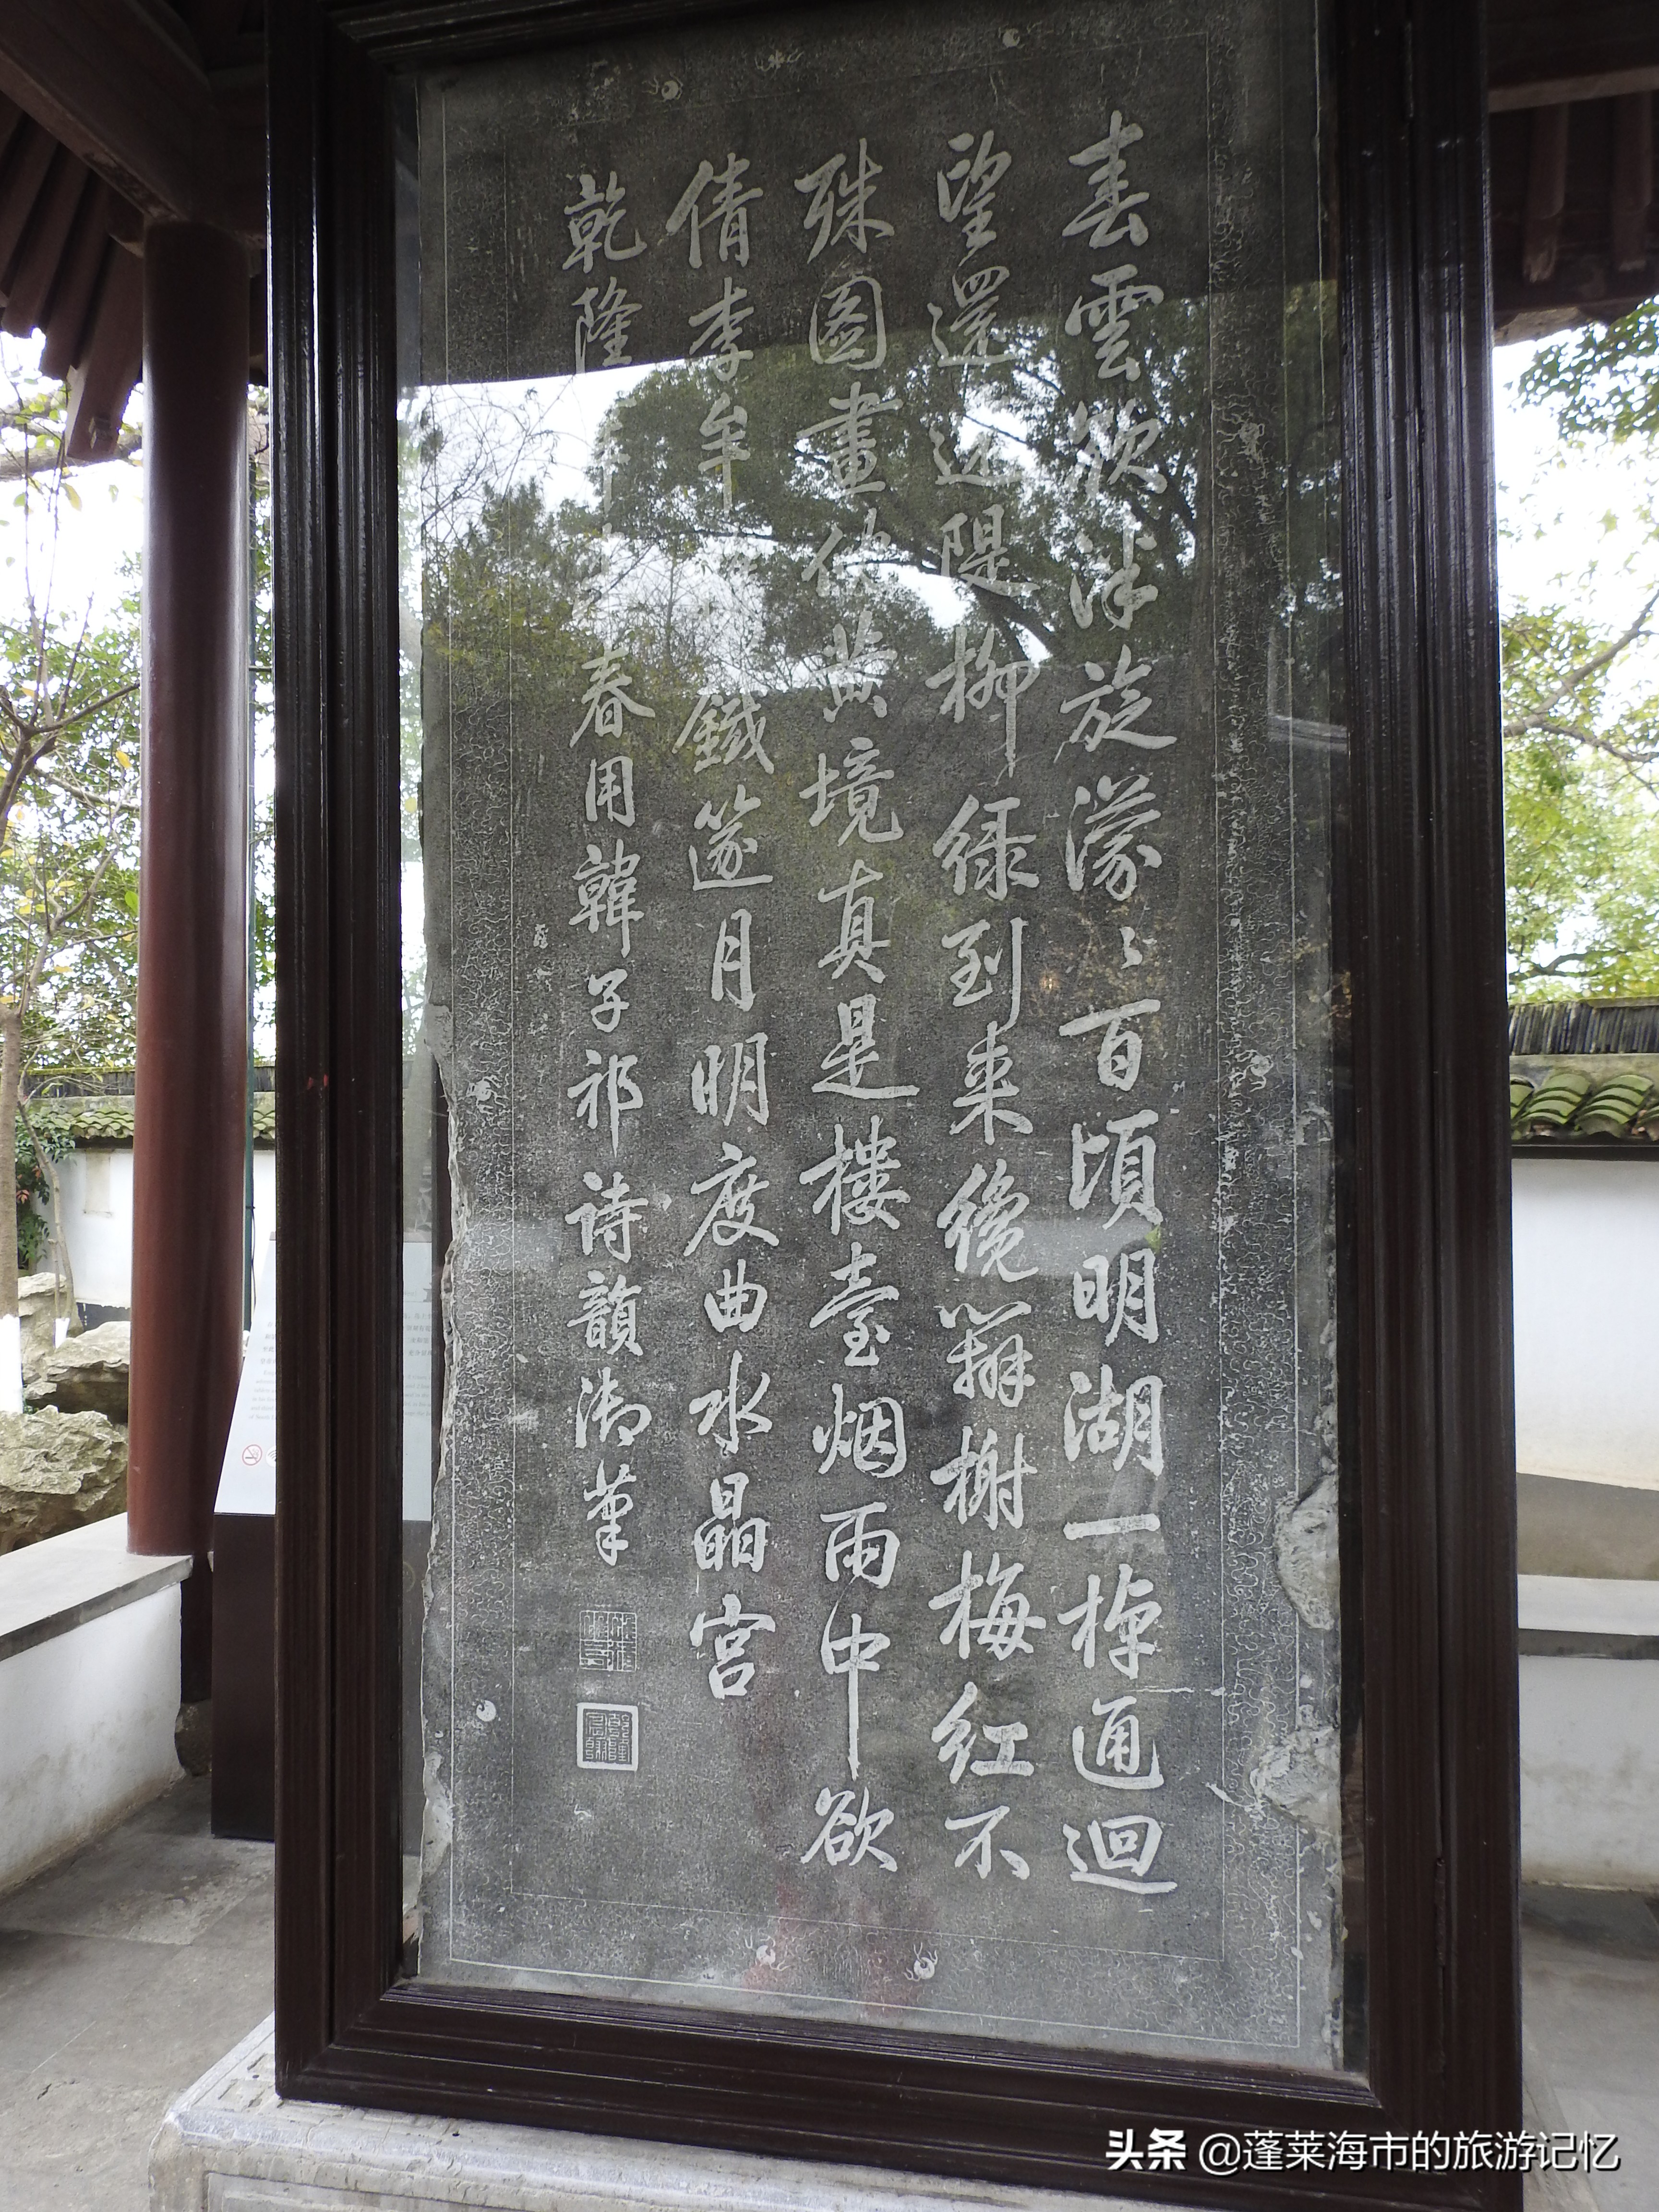 春雲欲泮旋濛〻百頃明湖一棹通迴
望還迷隄柳緑到來纔辨榭梅紅不
殊圖畫倪黄境真是樓臺烟雨中欲
倩李牟鐵篴月明度曲水晶宫
乾隆春用韓子祁詩韻御筆
头条 @蓬莱海市的旅游记忆